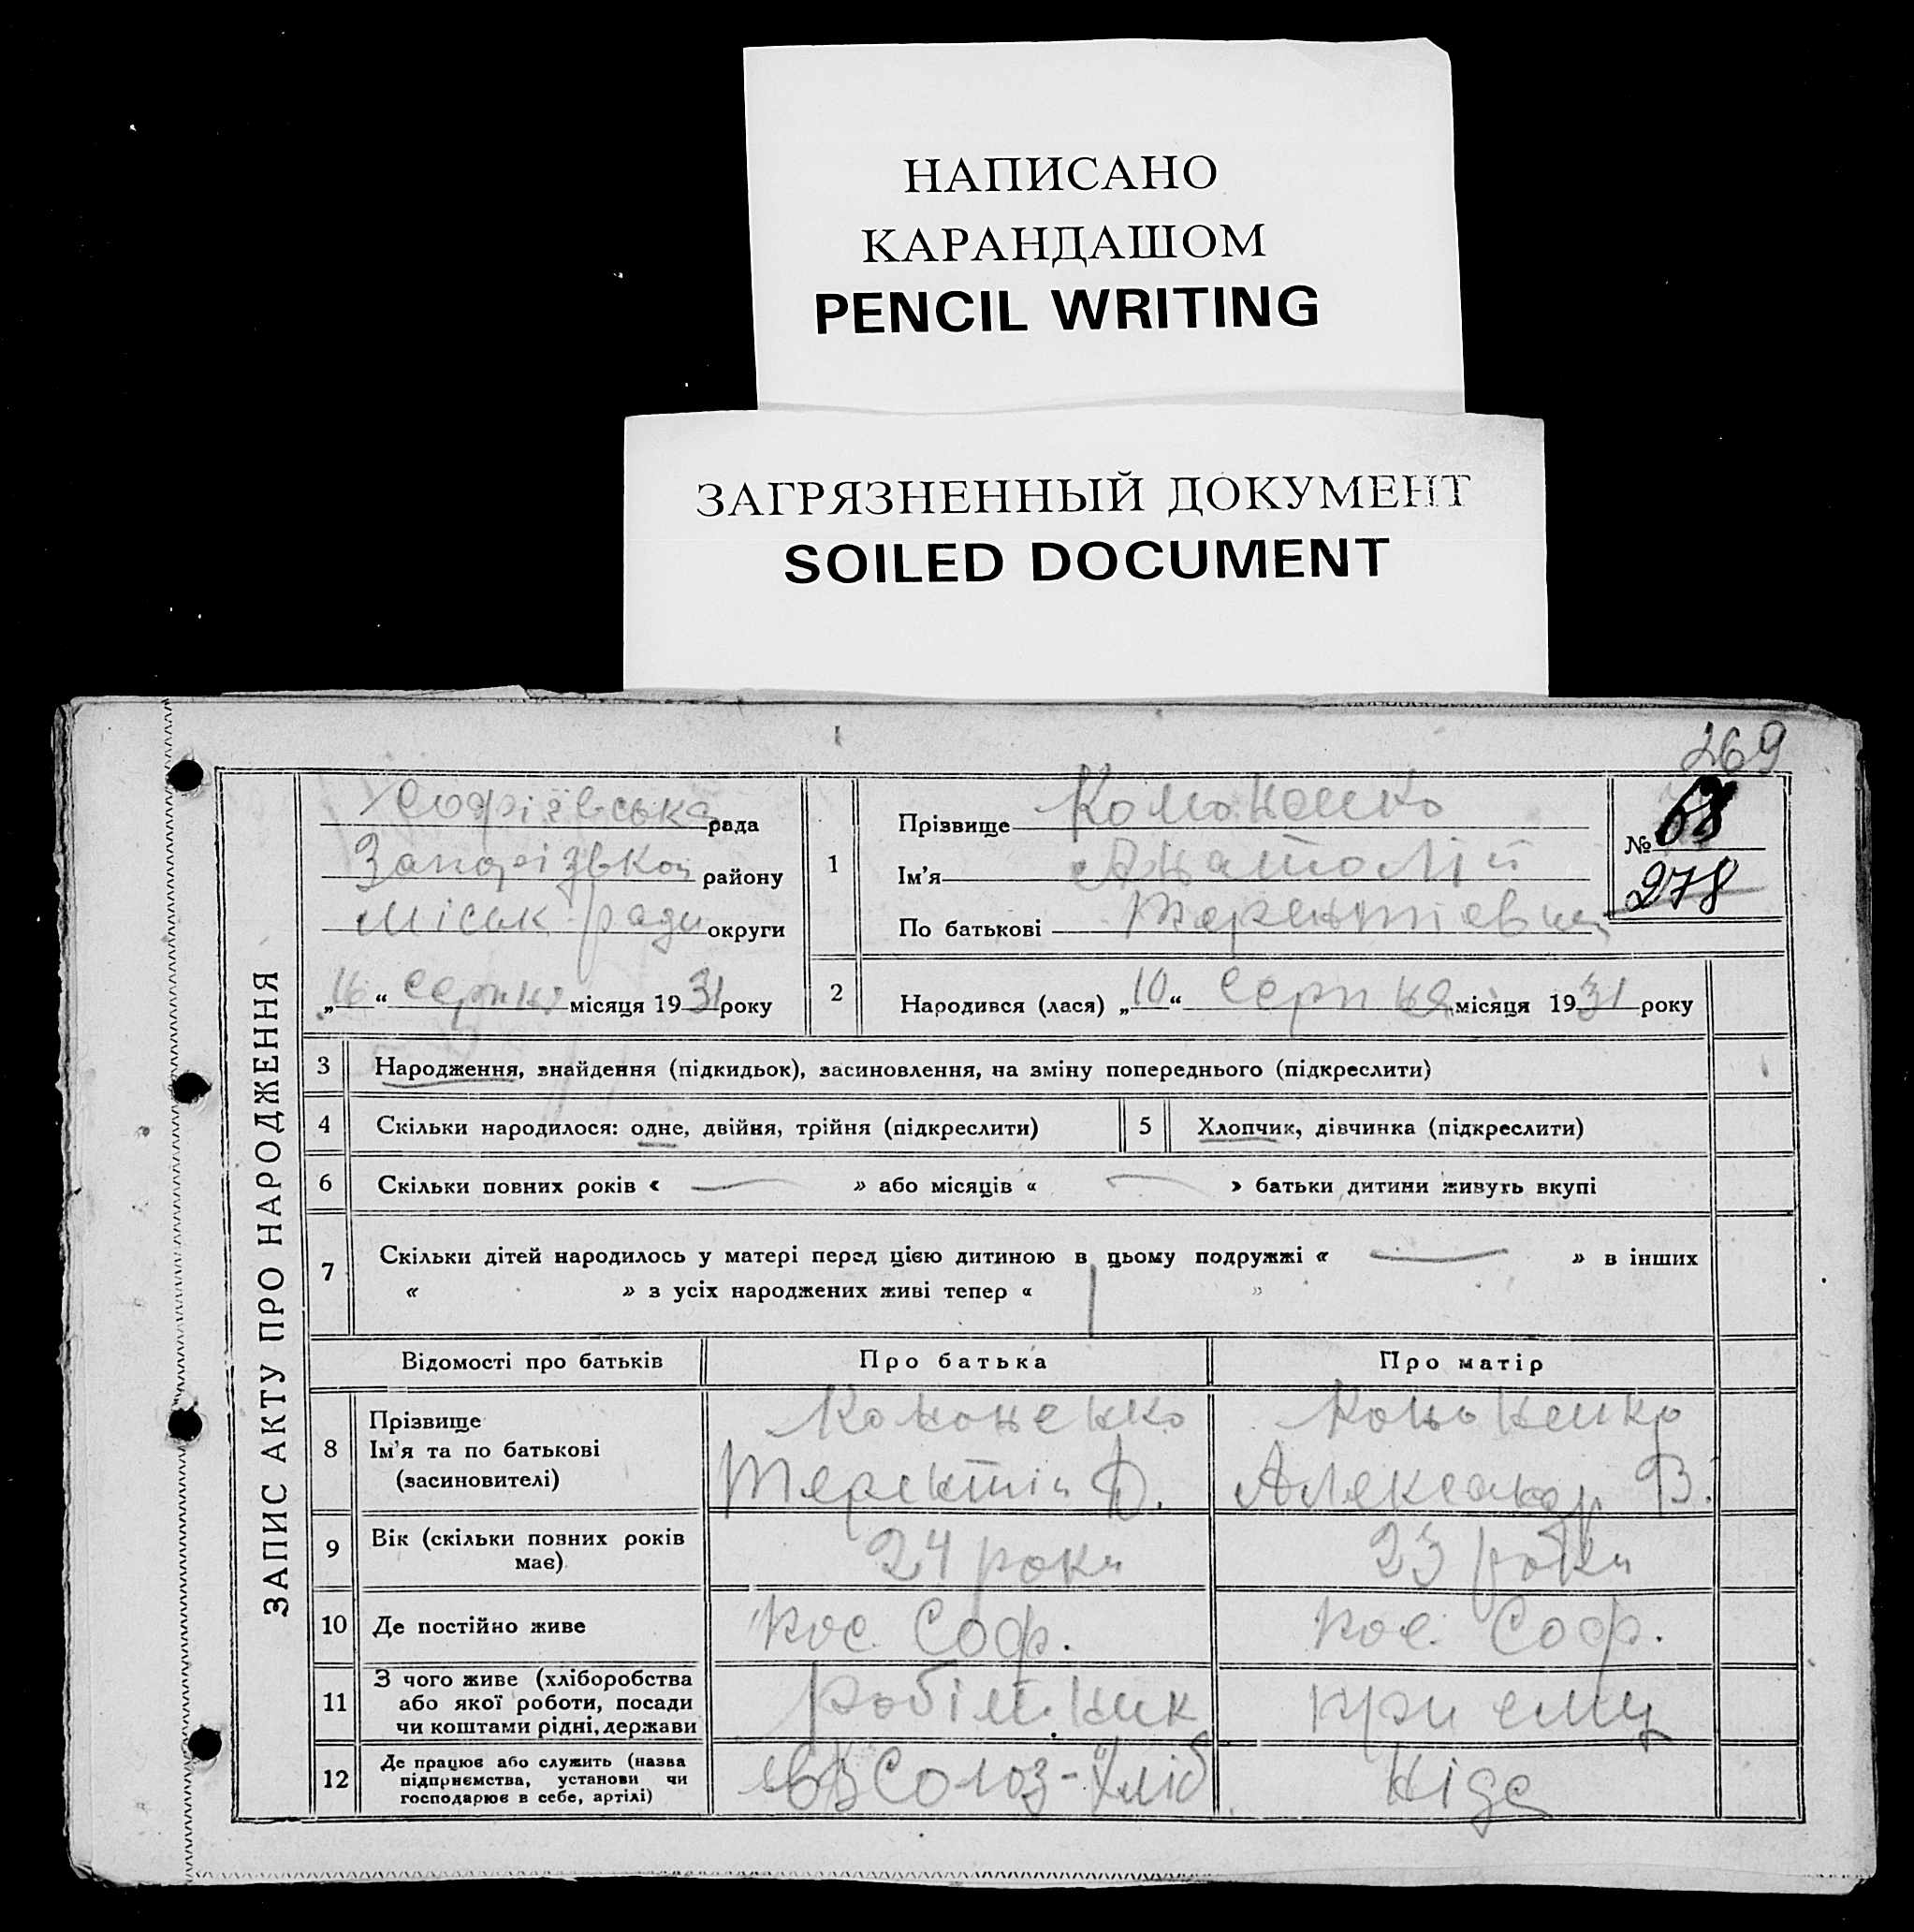 НАПИСАНО
КАРАНДАШОМ
PENCIL WRITING
ЗАГРЯЗНЕННЫЙ ДОКУМЕНТ
SOILED DOCUMENT
269
ЗАПИС АКТУ ПРО НАРОДЖЕННЯ
Софіївська рада
району
Міськ ради округи
„16“ серпня місяця 1931 року
1
Прізвище Кононенко
Ім'я Анатолій
По батькові Терентієвич
№ 68
278
2
Народився (лася) „10“ Серпня місяця 1931 року
3 Народження, знайдення (підкидьок), засиновлення, на зміну попереднього (підкреслити)
4 Скільки народилося: одне, двійня, трійня (підкреслити)
5 Хлопчик, дівчинка (підкреслити)
6 Скільки повних років « — » або місяців « — » батьки дитини живуть вкупі
7 Скільки дітей народилось у матері перед цією дитиною в цьому подружжі « — » в інших
« » з усіх народжених живі тепер « 1 »
Відомості про батьків
Про батька
Про матір
8 Прізвище
Ім'я та по батькові
(засиновителі)
Кононенко
Терентій Ф.
Кононенко
Александр В.
9 Вік (скільки повних років
має)
24 роки
23 роки
10 Де постійно живе
пос. Соф.
пос. Соф.
11 З чого живе (хліборобства
або якої роботи, посади
чи коштами рідні, держави
робітник
при ему
12 Де працює або служить (назва
підприємства, установи чи
господарює в себе, артілі)
Союз-хліб
Ніде